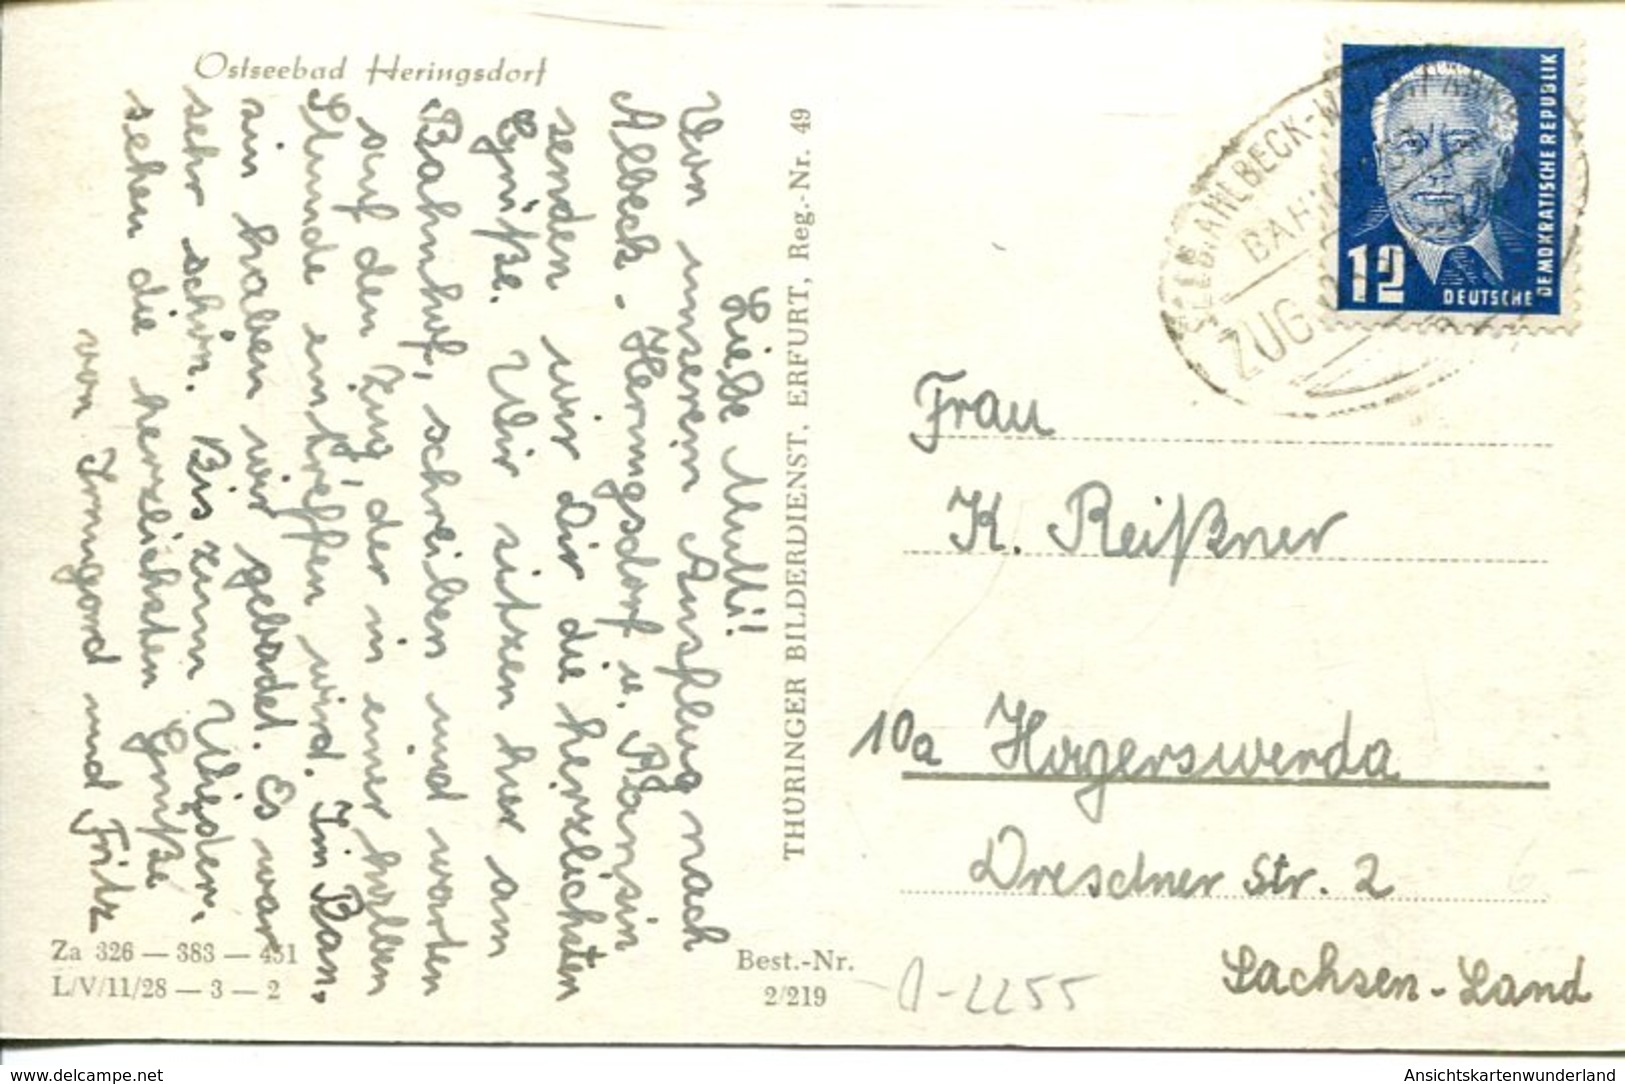 Ostseebad Heringsdorf
Liebe Mutti!
Von unserem Ausflug nach
Albeck - Heringsdorf u. Bansin
senden wir Dir die herzlichsten
Grüße. Wir sitzen hier am
Bahnhof, schreiben und warten
auf den Zug, der in einer halben
Stunde eintreffen wird. In Ban-
sin haben wir gebadet. Es war
sehr schön. Bis zum Wieder-
sehen die herzlichsten Grüße
von Irmgard und Fritz
Za 326 — 383 — 451
L/V/11/28 — 3 — 2
THÜRINGER BILDERDIENST, ERFURT, Reg.-Nr. 49
Best.-Nr.
2/219
A-2255
12
DEUTSCHE
DEMOKRATISCHE REPUBLIK
AHLBECK-
ZUG
Frau
K. Reißner
10a Hoyerswerda
Dresdner Str. 2
Sachsen-Land
www.delcampe.net
Ansichtskartenwunderland